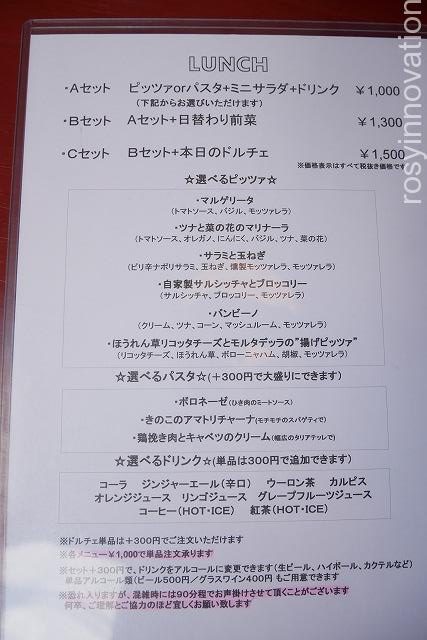 LUNCH
・Aセット　ピッツァorパスタ+ミニサラダ+ドリンク　￥1,000
（下記からお選びいただけます）
・Bセット　Aセット+日替わり前菜　￥1,300
・Cセット　Bセット+本日のドルチェ　￥1,500
※価格表示はすべて税抜き価格です
☆選べるピッツァ☆
・マルゲリータ
（トマトソース、バジル、モッツァレラ）
・ツナと菜の花のマリナーラ
（トマトソース、オレガノ、にんにく、バジル、ツナ、菜の花）
・サラミと玉ねぎ
（ピリ辛ナポリサラミ、玉ねぎ、燻製モッツァレラ、モッツァレラ）
・自家製サルシッチャとブロッコリー
（サルシッチャ、ブロッコリー、モッツァレラ）
・バンビーノ
（クリーム、ツナ、コーン、マッシュルーム、モッツァレラ）
・ほうれん草リコッタチーズとモルタデッラの"揚げピッツァ"
（リコッタチーズ、ほうれん草、ボローニャハム、胡椒、モッツァレラ）
☆選べるパスタ☆（+300円で大盛りにできます）
・ボロネーゼ（ひき肉のミートソース）
・きのこのアマトリチャーナ（モチモチのスパゲティで）
・鶏挽き肉とキャベツのクリーム（幅広のタリアテッレで）
☆選べるドリンク☆（単品は300円で追加できます）
コーラ　ジンジャーエール（辛口）　ウーロン茶　カルピス
オレンジジュース　リンゴジュース　グレープフルーツジュース
コーヒー（HOT・ICE）　紅茶（HOT・ICE）
※ドルチェ単品は＋300円でご注文いただけます
※各メニュー￥1,000で単品注文承ります
※セット＋300円で、ドリンクをアルコールに変更できます（生ビール、ハイボール、カクテルなど）
単品アルコール類（ビール500円／グラスワイン400円 もご用意できます
※恐れ入りますが、混雑時には90分程でお声掛けさせて頂くことがございます
何卒、ご理解とご協力のほど宜しくお願い致します
rosyinnovation